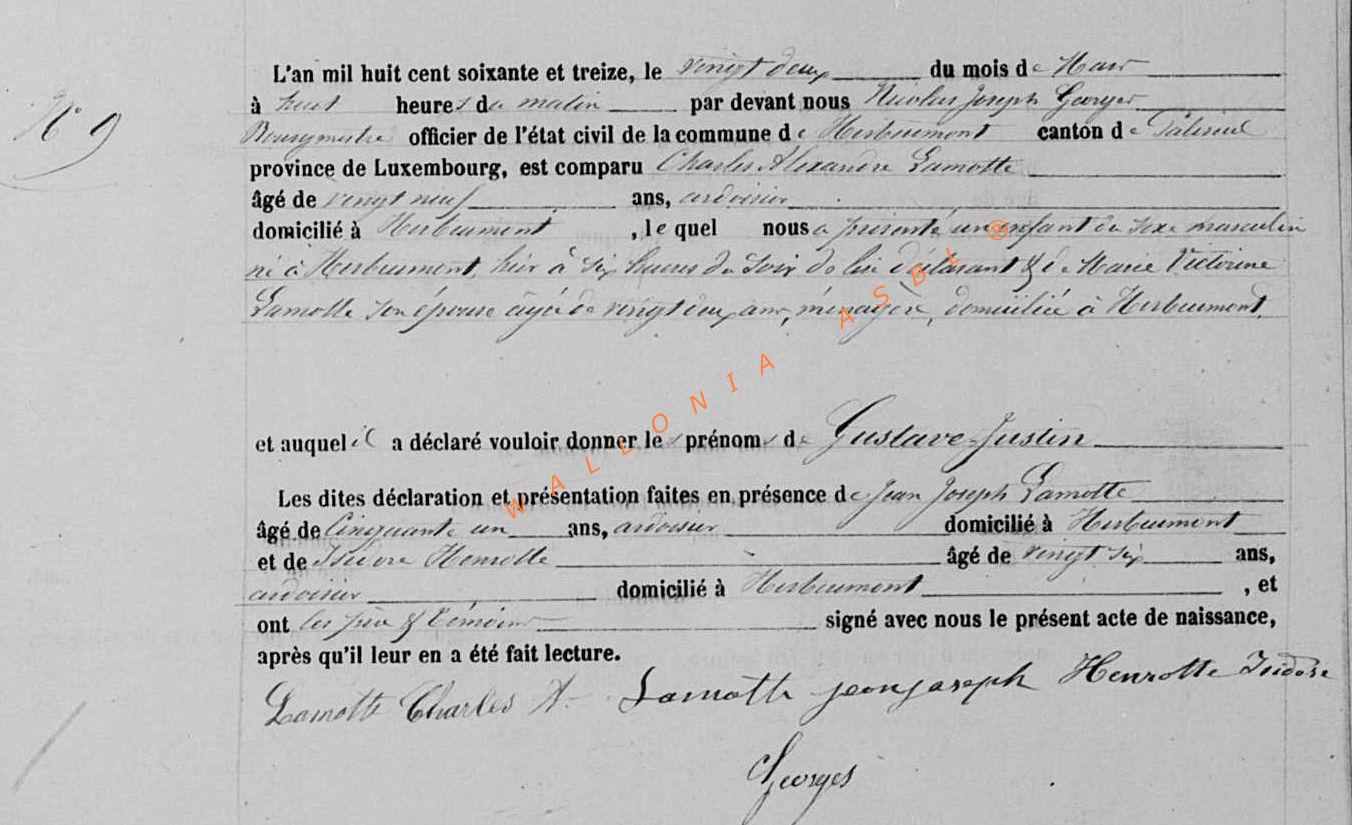 N° 9
L'an mil huit cent soixante et treize, le vingt deux du mois de Mars
à huit heures du matin par devant nous Nicolas Joseph Georges
Bourgmestre officier de l'état civil de la commune de Herbeumont canton de Paliseul
province de Luxembourg, est comparu Charles Alexandre Lamotte
âgé de vingt neuf ans, ardoisier
domicilié à Herbeumont, lequel nous a présenté un enfant du sexe masculin
né à Herbeumont, hier à six heures du soir de lui déclarant & de Marie Victorine
Lamotte son épouse âgée de vingt deux ans, ménagère, domiciliée à Herbeumont.
et auquel il a déclaré vouloir donner les prénoms de Gustave-Justin
Les dites déclaration et présentation faites en présence de Jean Joseph Lamotte
âgé de Cinquante un ans, ardoisier domicilié à Herbeumont
et de Isidore Henrotte âgé de vingt six ans,
ardoisier domicilié à Herbeumont, et
ont les père & témoins signé avec nous le présent acte de naissance,
après qu'il leur en a été fait lecture.
Lamotte Charles A. Lamotte jean joseph Henrotte Isidore
Georges
WALLONIA ASBL ®